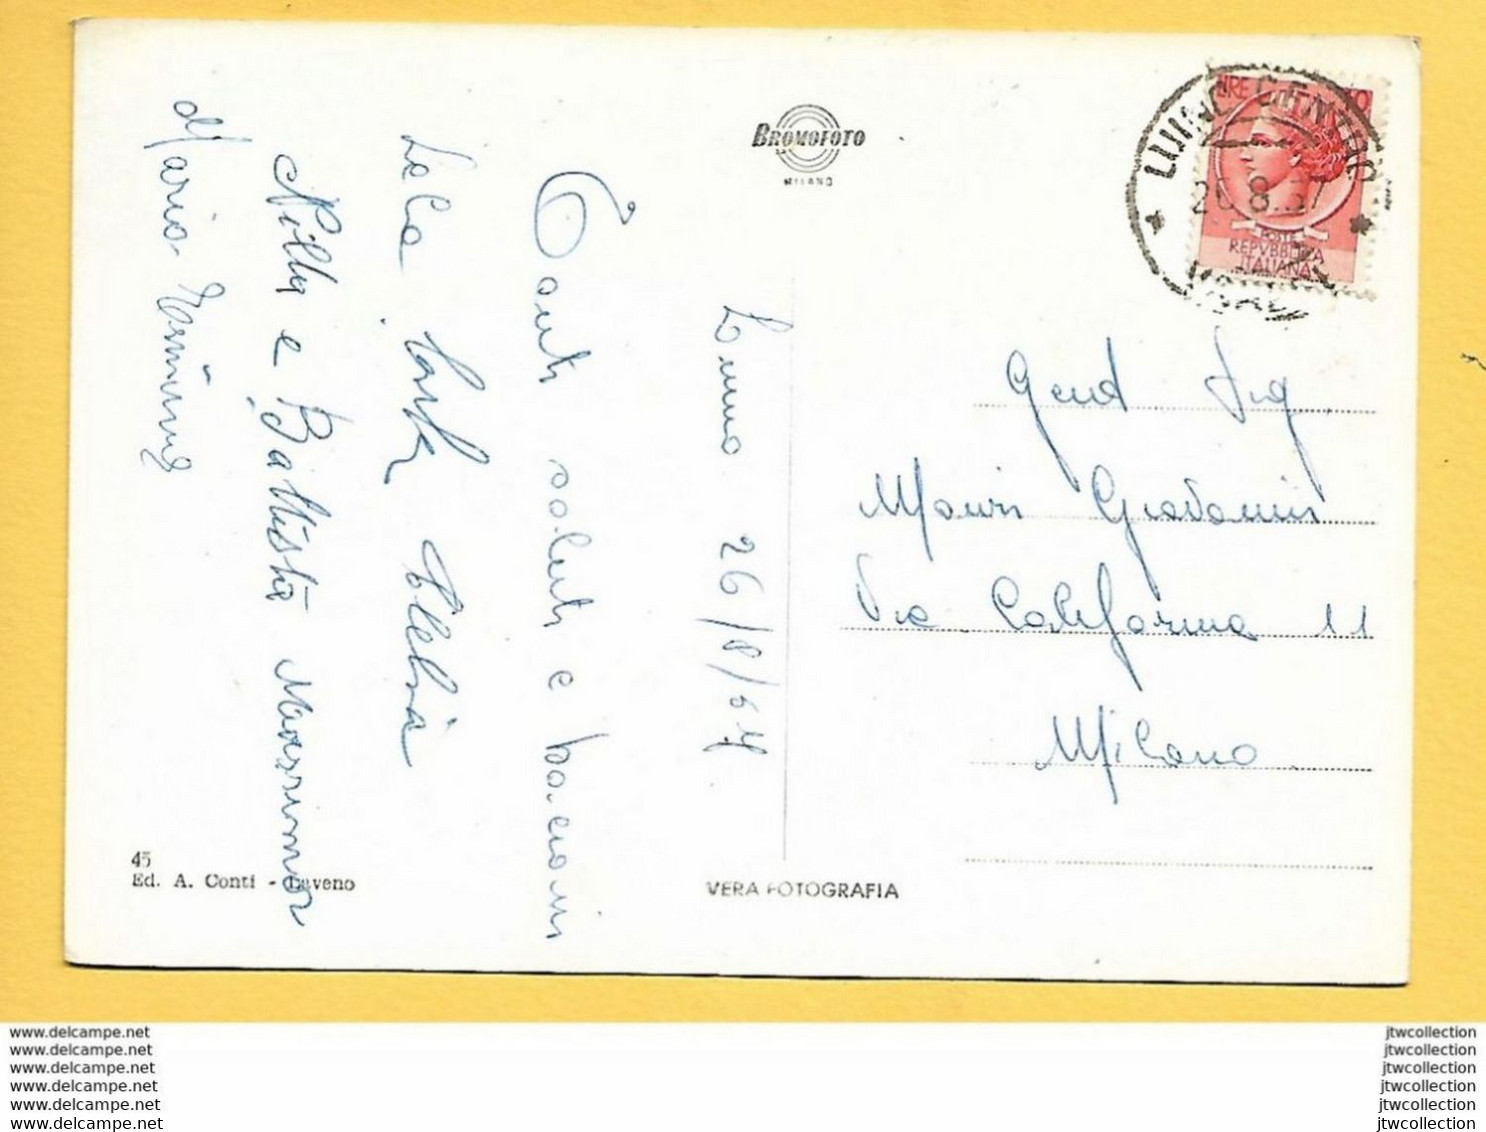 BROMOFOTO
MILANO
LUINO CENTRO
26.8.57
LIRE
POSTE
REPVBBLICA
ITALIANA
Luino 26/8/57
Tanti saluti e bacioni
Lola
Nilly e Battista
Maria
Gent Sig
Giovanni
Via California 11
Milano
45
Ed. A. Conti - Laveno
VERA FOTOGRAFIA
www.delcampe.net
www.delcampe.net
www.delcampe.net
www.delcampe.net
www.delcampe.net
www.delcampe.net
jtwcollection
jtwcollection
jtwcollection
jtwcollection
jtwcollection
jtwcollection